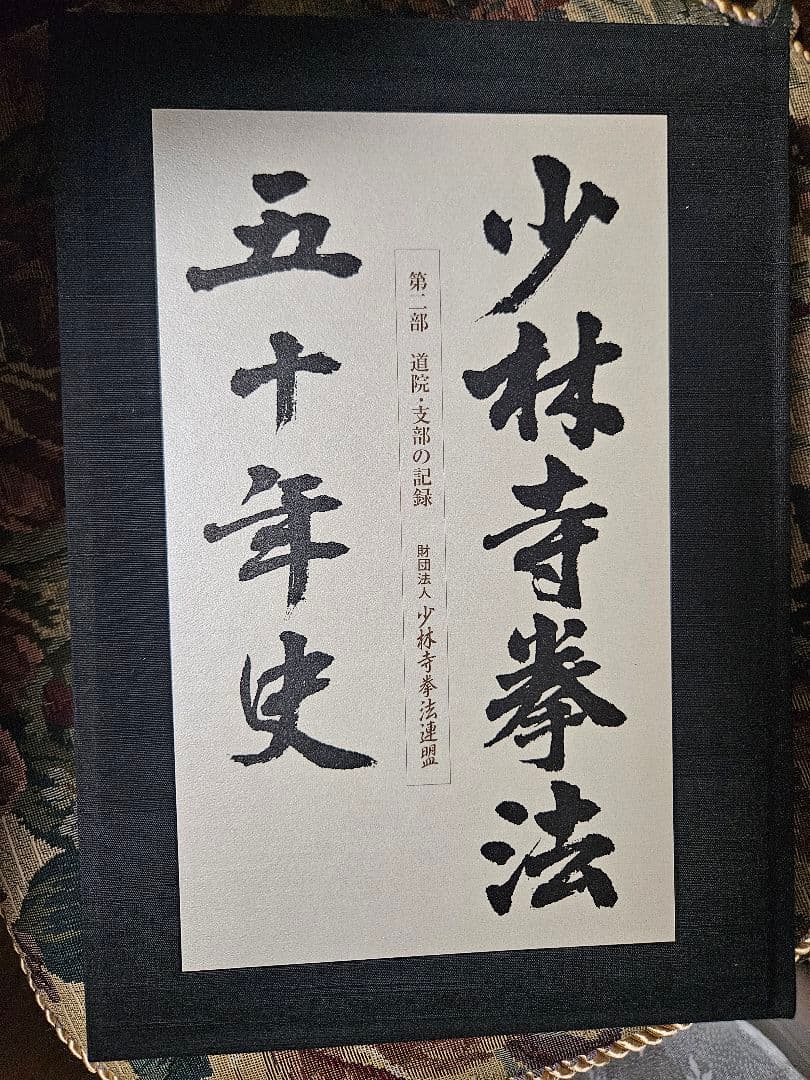 少林寺拳法
第二部 道院・支部の記録 財団法人 少林寺拳法連盟
五十年史